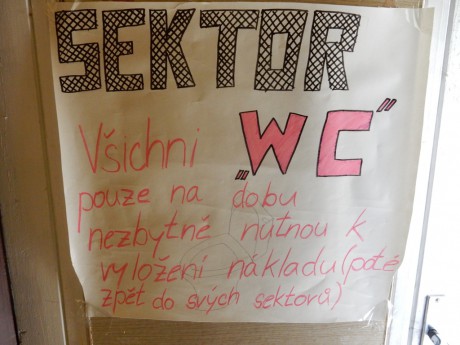 SEKTOR
„WC“
Všichni
pouze na dobu
nezbytně nutnou k
vyložení nákladu (poté
zpět do svých sektorů)